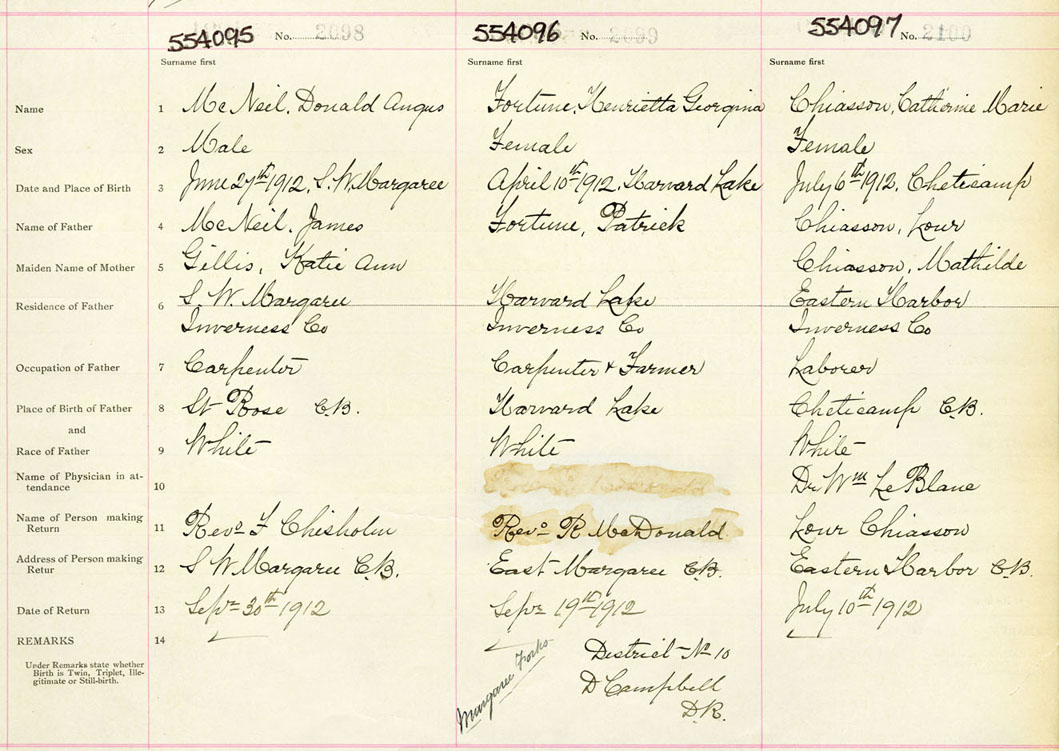 554095 No. 2098 554096 No. 2099 554097 No. 2100
Surname first Surname first Surname first
Name 1 McNeil, Donald Angus Fortune, Henrietta Georgina Chiasson, Catherine Marie
Sex 2 Male Female Female
Date and Place of Birth 3 June 27th 1912, S.W. Margaree April 10th 1912, Harvard Lake July 6th 1912, Cheticamp
Name of Father 4 McNeil, James Fortune, Patrick Chiasson, Lour
Maiden Name of Mother 5 Gillis, Katie Ann Chiasson, Mathilde
Residence of Father 6 S. W. Margaree Harvard Lake Eastern Harbor
Inverness Co Inverness Co Inverness Co
Occupation of Father 7 Carpenter Carpenter + Farmer Laborer
Place of Birth of Father 8 St Rose C.B. Harvard Lake Cheticamp C.B.
and
Race of Father 9 White White White
Name of Physician in at-
tendance 10 Dr Wm LeBlanc
Name of Person making
Return 11 Revd F Chisholm Revd R McDonald Lour Chiasson
Address of Person making
Retur 12 S W Margaree C.B. East Margaree C.B. Eastern Harbor C.B.
Date of Return 13 Sept 30th 1912 Sept 19th 1912 July 10th 1912
REMARKS 14
Under Remarks state whether
Birth is Twin, Triplet, Ille-
gitimate or Still-birth.
Margaree Forks
District No 10
D Campbell
D.R.